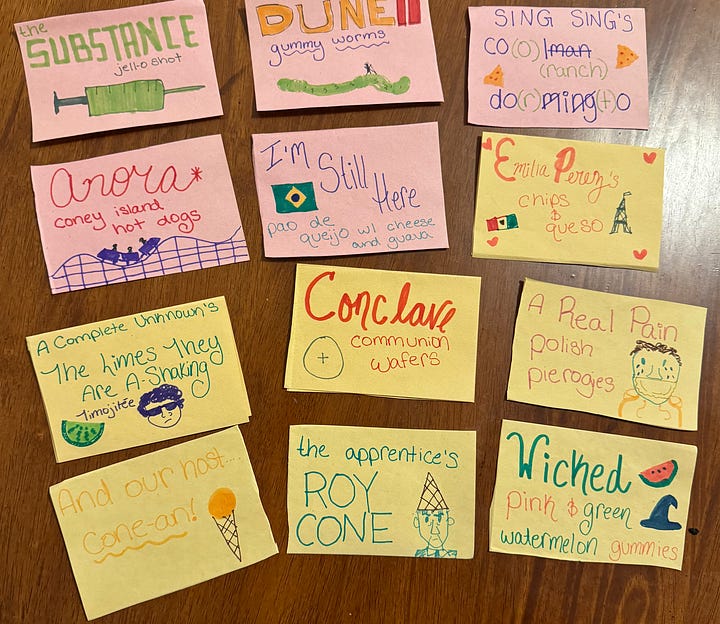 the
SUBSTANCE
jell-o shot
DUNE II
gummy worms
SING SING'S
co(o)lman
(ranch)
do(r)ming(t)o
Anora*
coney island
hot dogs
I'm
Still
Here
pao de
queijo w/ cheese
and guava
Emilia Perez's
chips
&
queso
A Complete Unknown's
The Limes They
Are A-Shaking
Timojitée
Conclave
communion
wafers
A Real Pain
polish
pierogies
And our host....
cone-an!
the apprentice's
ROY
CONE
Wicked
pink & green
watermelon gummies